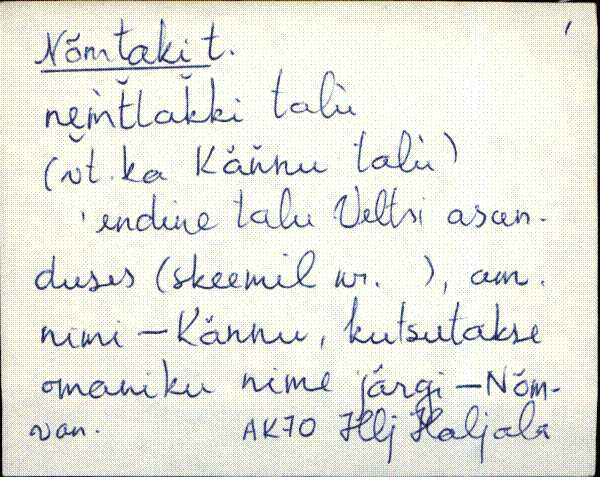 Nõmtaki t.
nẹm̀t̆lak̆ki talù
(vt. ka Kän̆nu talù)
'endine talu Veltsi asan-
duses (skeemil nr. ), am.
nimi – Kännu, kutsutakse
omaniku nime järgi – Nõm-
van. AK70 Hlj Haljala